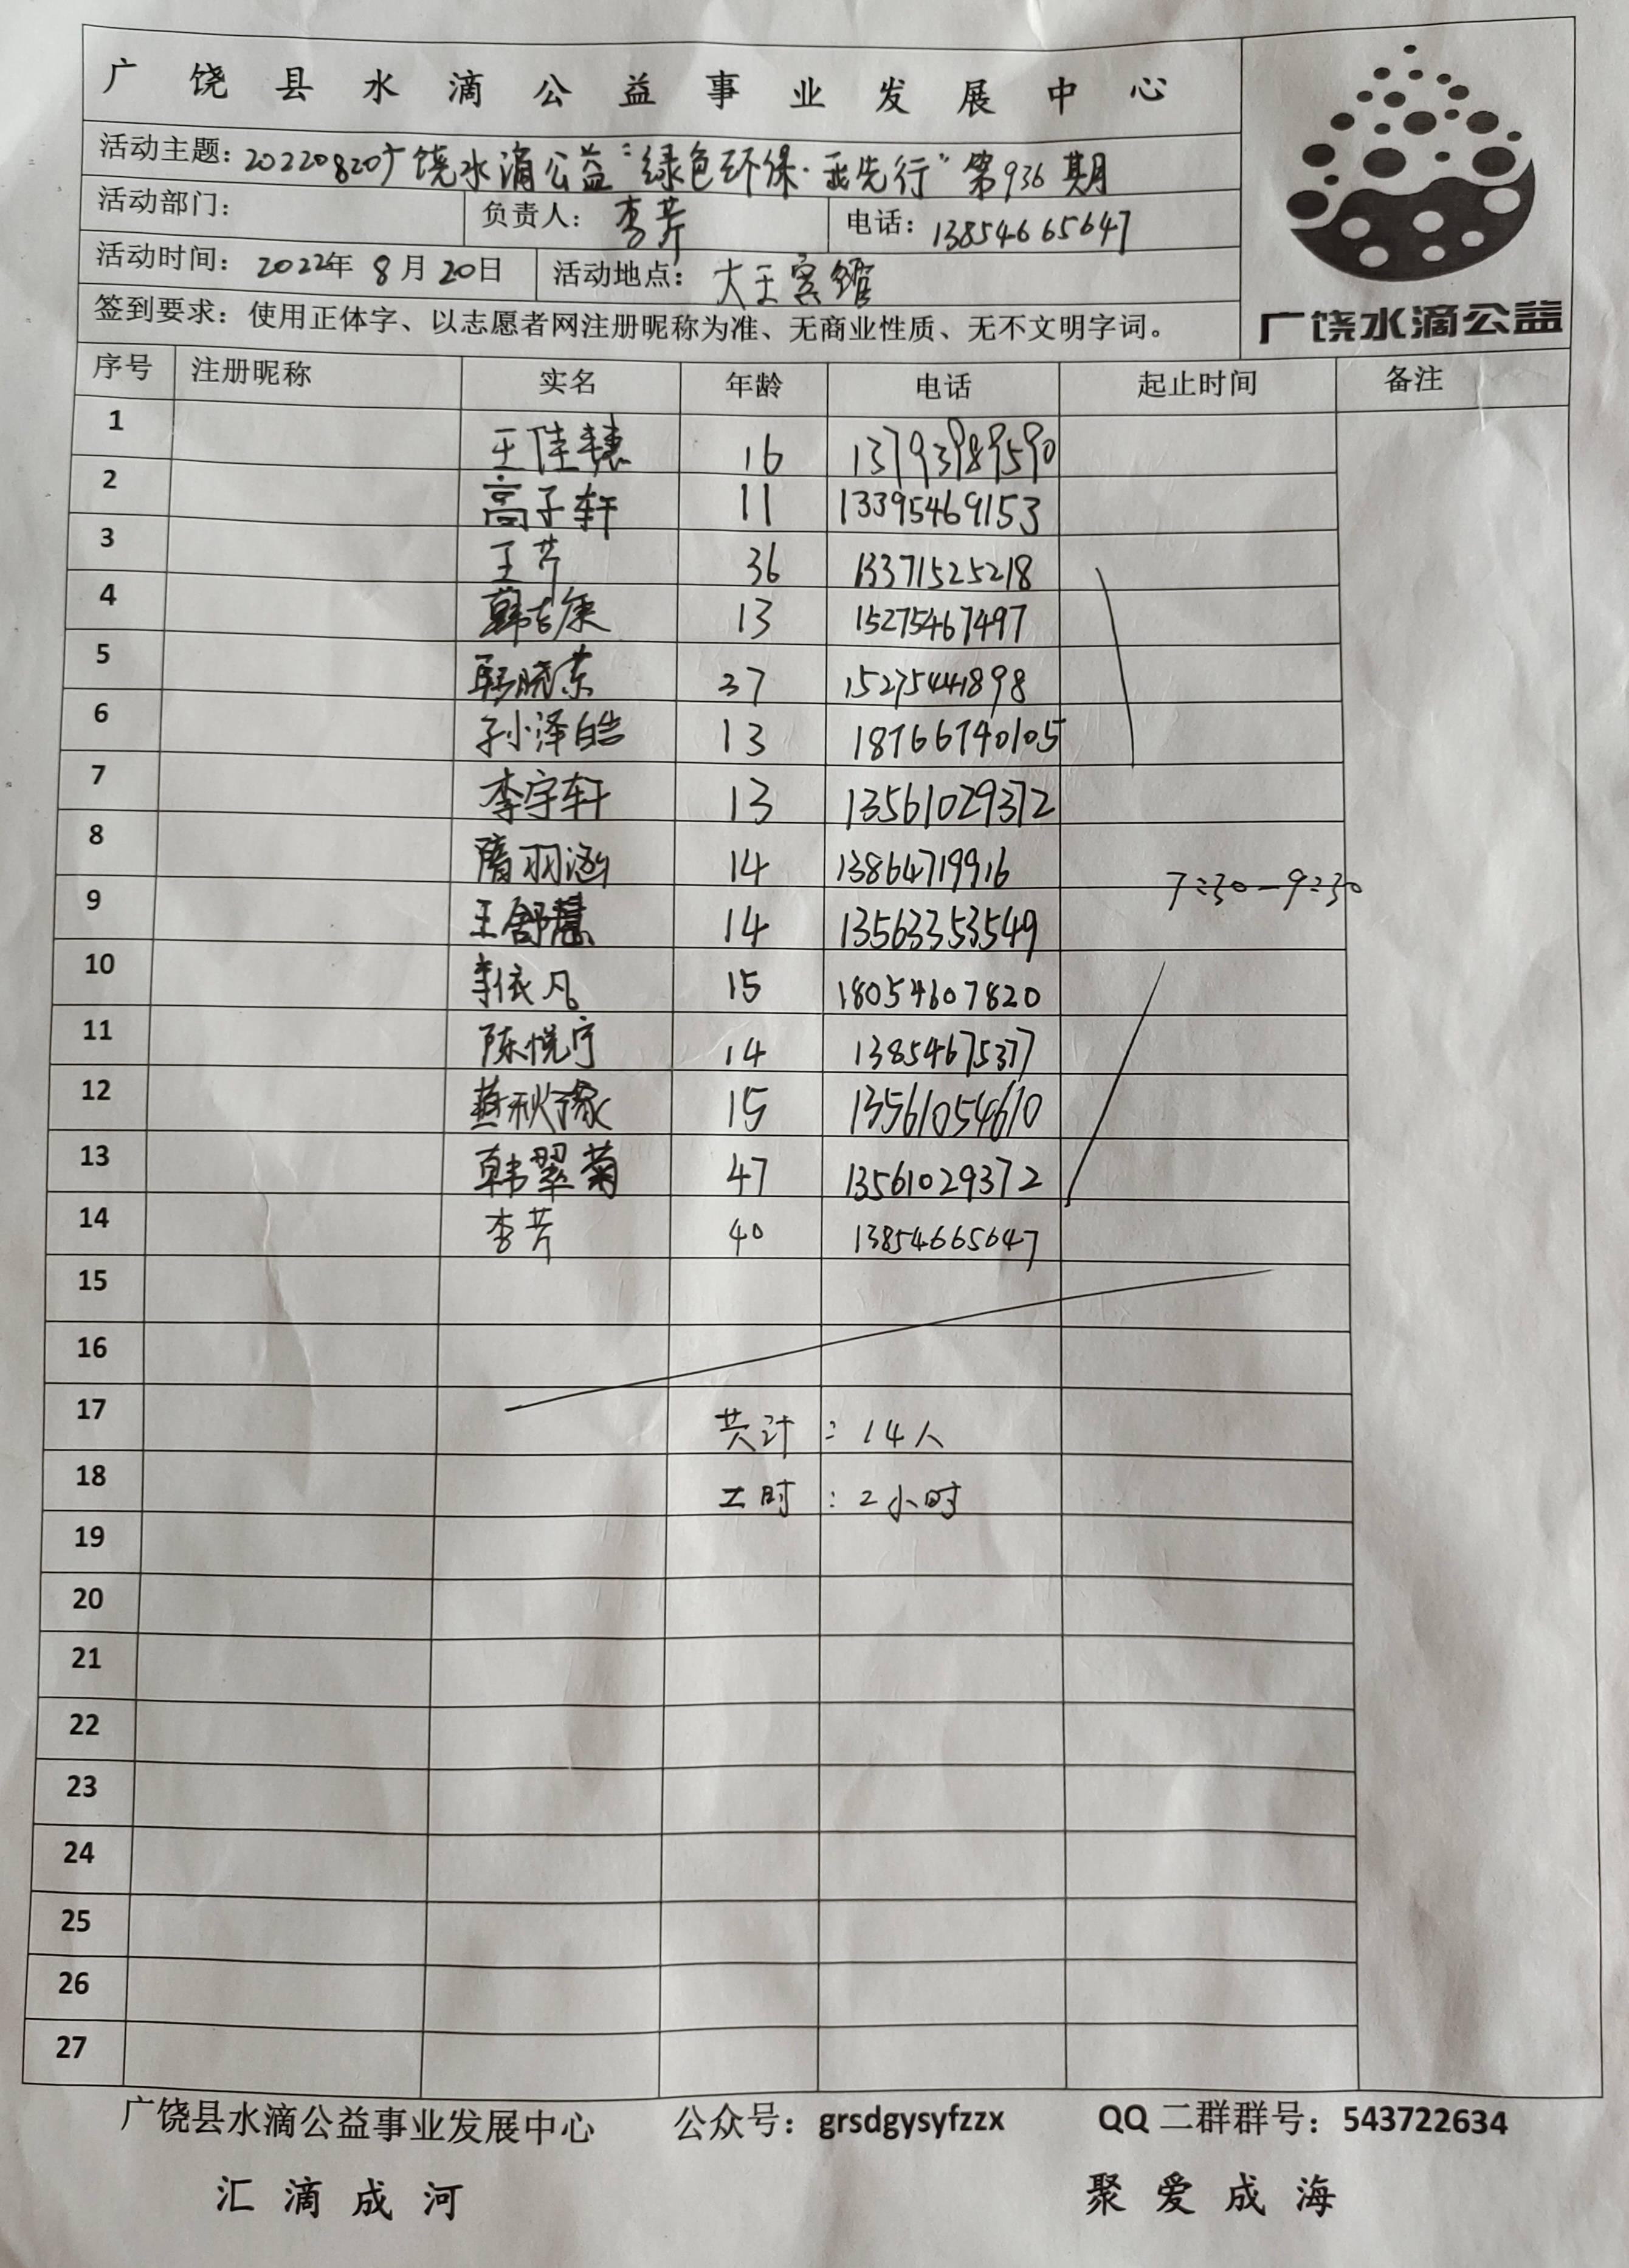 广饶县水滴公益事业发展中心
活动主题：20220820广饶水滴公益“绿色环保·我先行”第936期
活动部门： 负责人：李芹 电话：13854665647
活动时间：2022年8月20日 活动地点：大王宾馆
签到要求：使用正体字、以志愿者网注册昵称为准、无商业性质、无不文明字词。
广饶水滴公益
序号 注册昵称 实名 年龄 电话 起止时间 备注
1 王佳穗 16 13793989590
2 高子轩 11 13395469153
3 王芹 36 13371525218
4 韩吉康 13 15275467497
5 韩晓荣 37 15275441898
6 孙小泽皓 13 18766740105
7 李宇轩 13 13561029372
8 隋羽涵 14 13864719916 7:30-9:30
9 王舒慧 14 13563353549
10 李依凡 15 18054607820
11 陈悦宁 14 13854675377
12 燕秋缘 15 13561054610
13 韩翠菊 47 13561029372
14 李芹 40 13854665647
15
16
17 共计：14人
18 工时：2小时
19
20
21
22
23
24
25
26
27
广饶县水滴公益事业发展中心 公众号：grsdgysyfzzx QQ二群群号：543722634
汇滴成河 聚爱成海